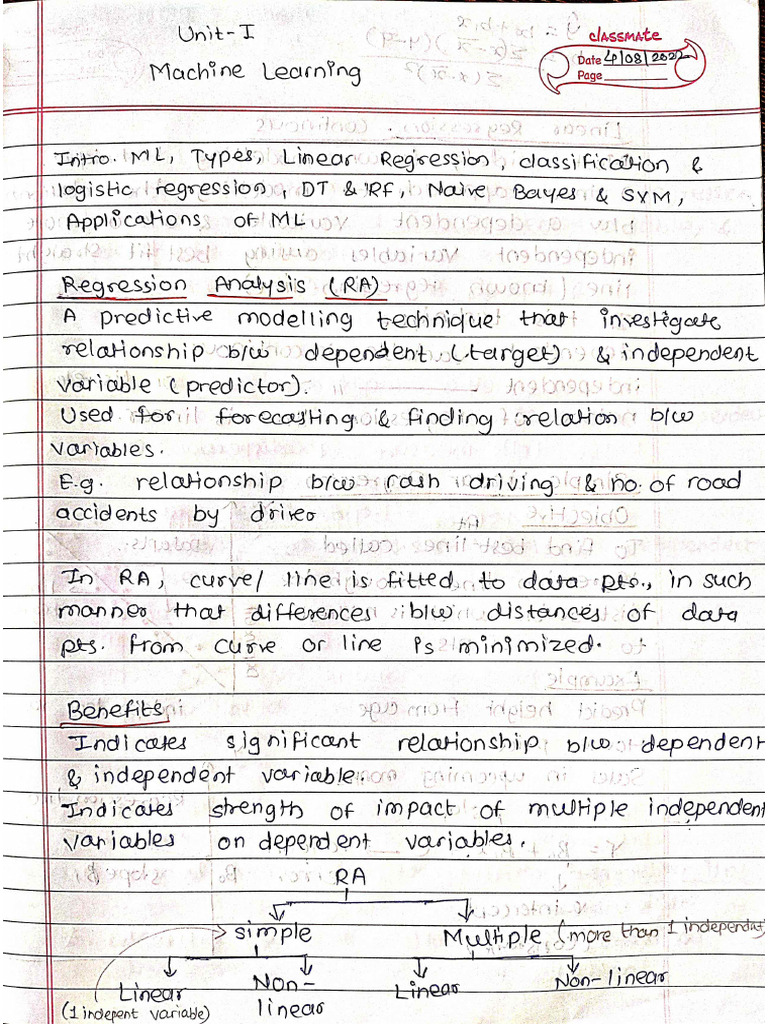 Unit-I
Machine Learning
classmate
Date 4/08/2022
Page
Intro. ML, Types, Linear Regression, classification &
logistic regression, DT & RF, Naive Bayes & SXM,
Applications of ML
Regression Analysis (RA)
A predictive modelling technique that investigate
relationship b/w dependent (target) & independent
variable (predictor).
Used for forecasting & finding relation b/w
variables.
E.g. relationship b/w rash driving & no. of road
accidents by driver
In RA, curve/ line is fitted to data pts., in such
manner that differences b/w distances of data
pts. from curve or line is minimized.
Benefits
Indicates significant relationship b/w dependent
& independent variable
Indicates strength of impact of multiple independent
variables on dependent variables.
RA
simple
Multiple (more than 1 independat)
Linear
Non-linear
Linear
Non-linear
(1 indepent variable)